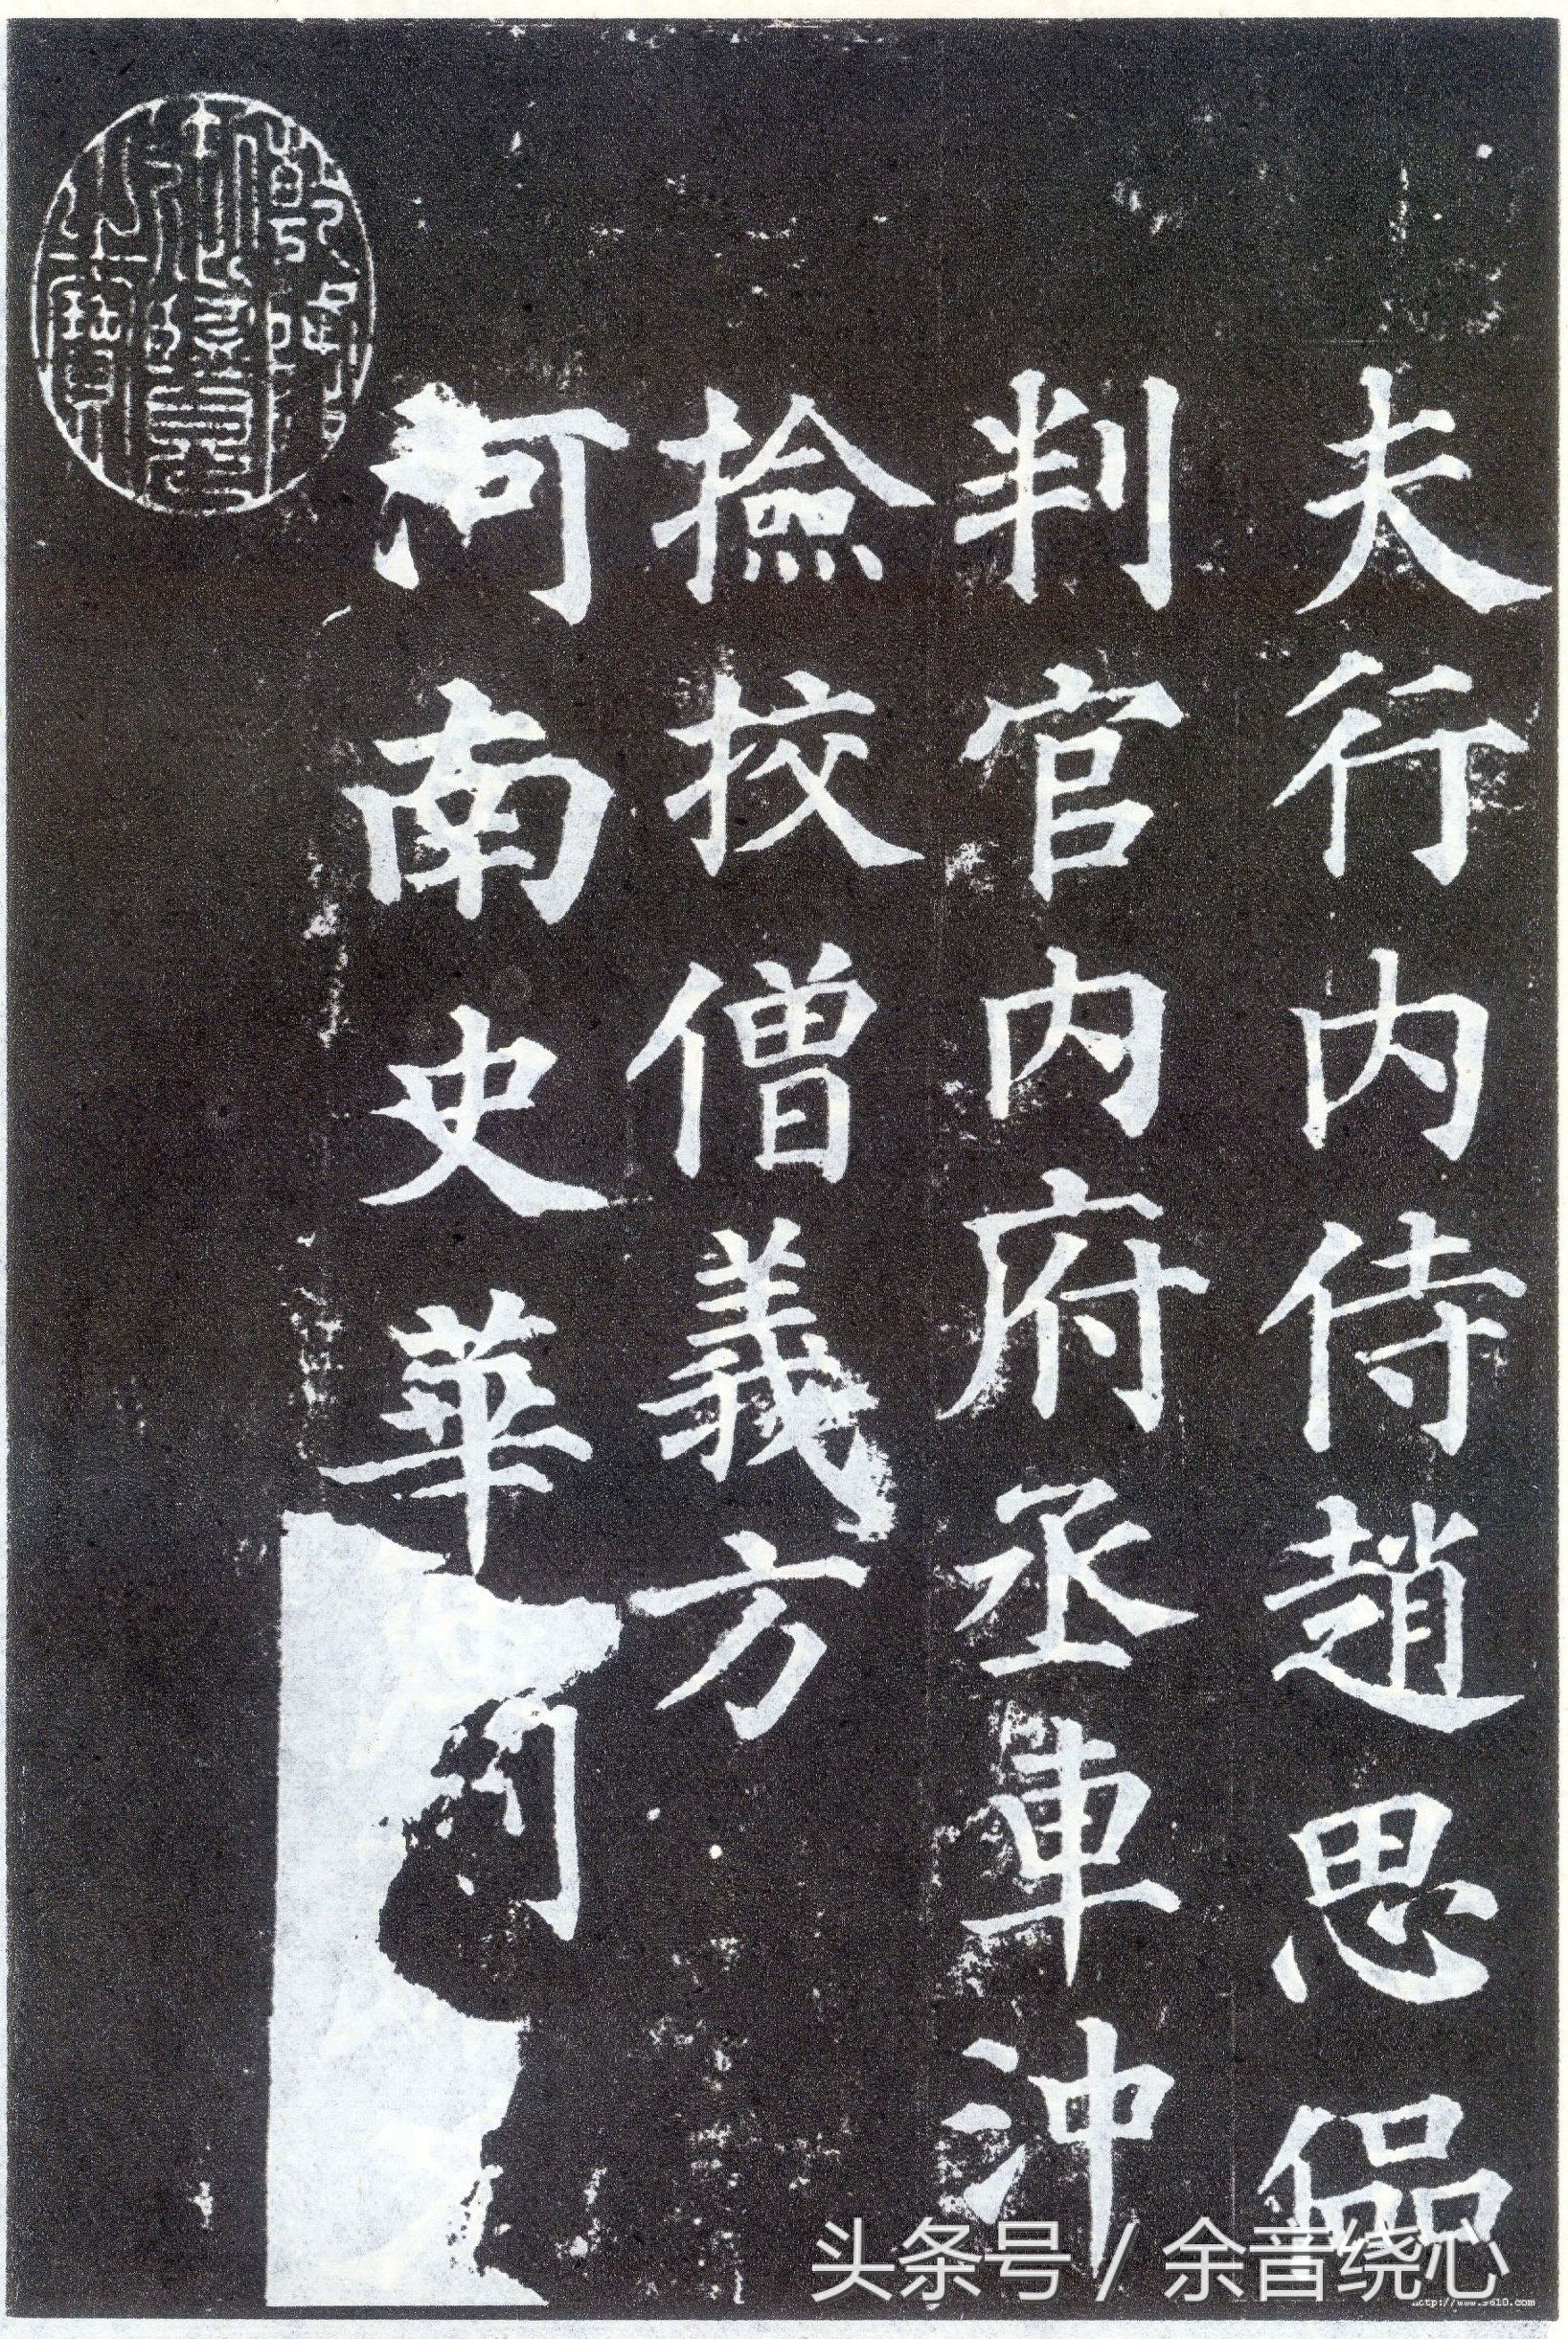 夫行内侍趙思偘
判官内府丞車沖
撿挍僧義方
河南史華刻
头条号 / 余音绕心
http://www.9610.com